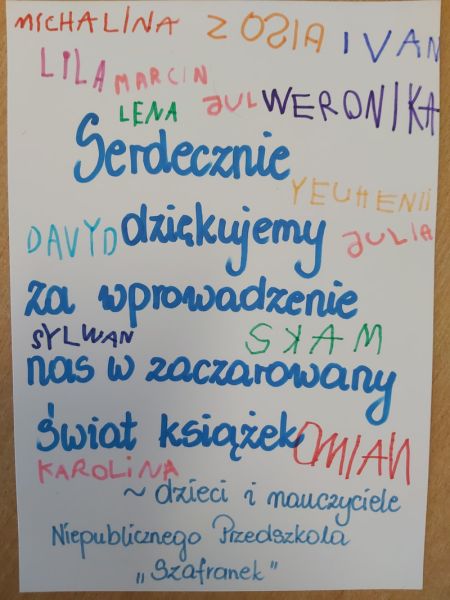 MICHALINA ZOSIA IVAN
LILA MARCIN
LENA JUL WERONIKA
Serdecznie
YEUHENII
DAVYD dziękujemy JULIA
za wprowadzenie
SYLWAN MAKS
nas w zaczarowany
świat książek OMIAN
KAROLINA
~ dzieci i nauczyciele
Niepublicznego Przedszkola
„Szafranek"